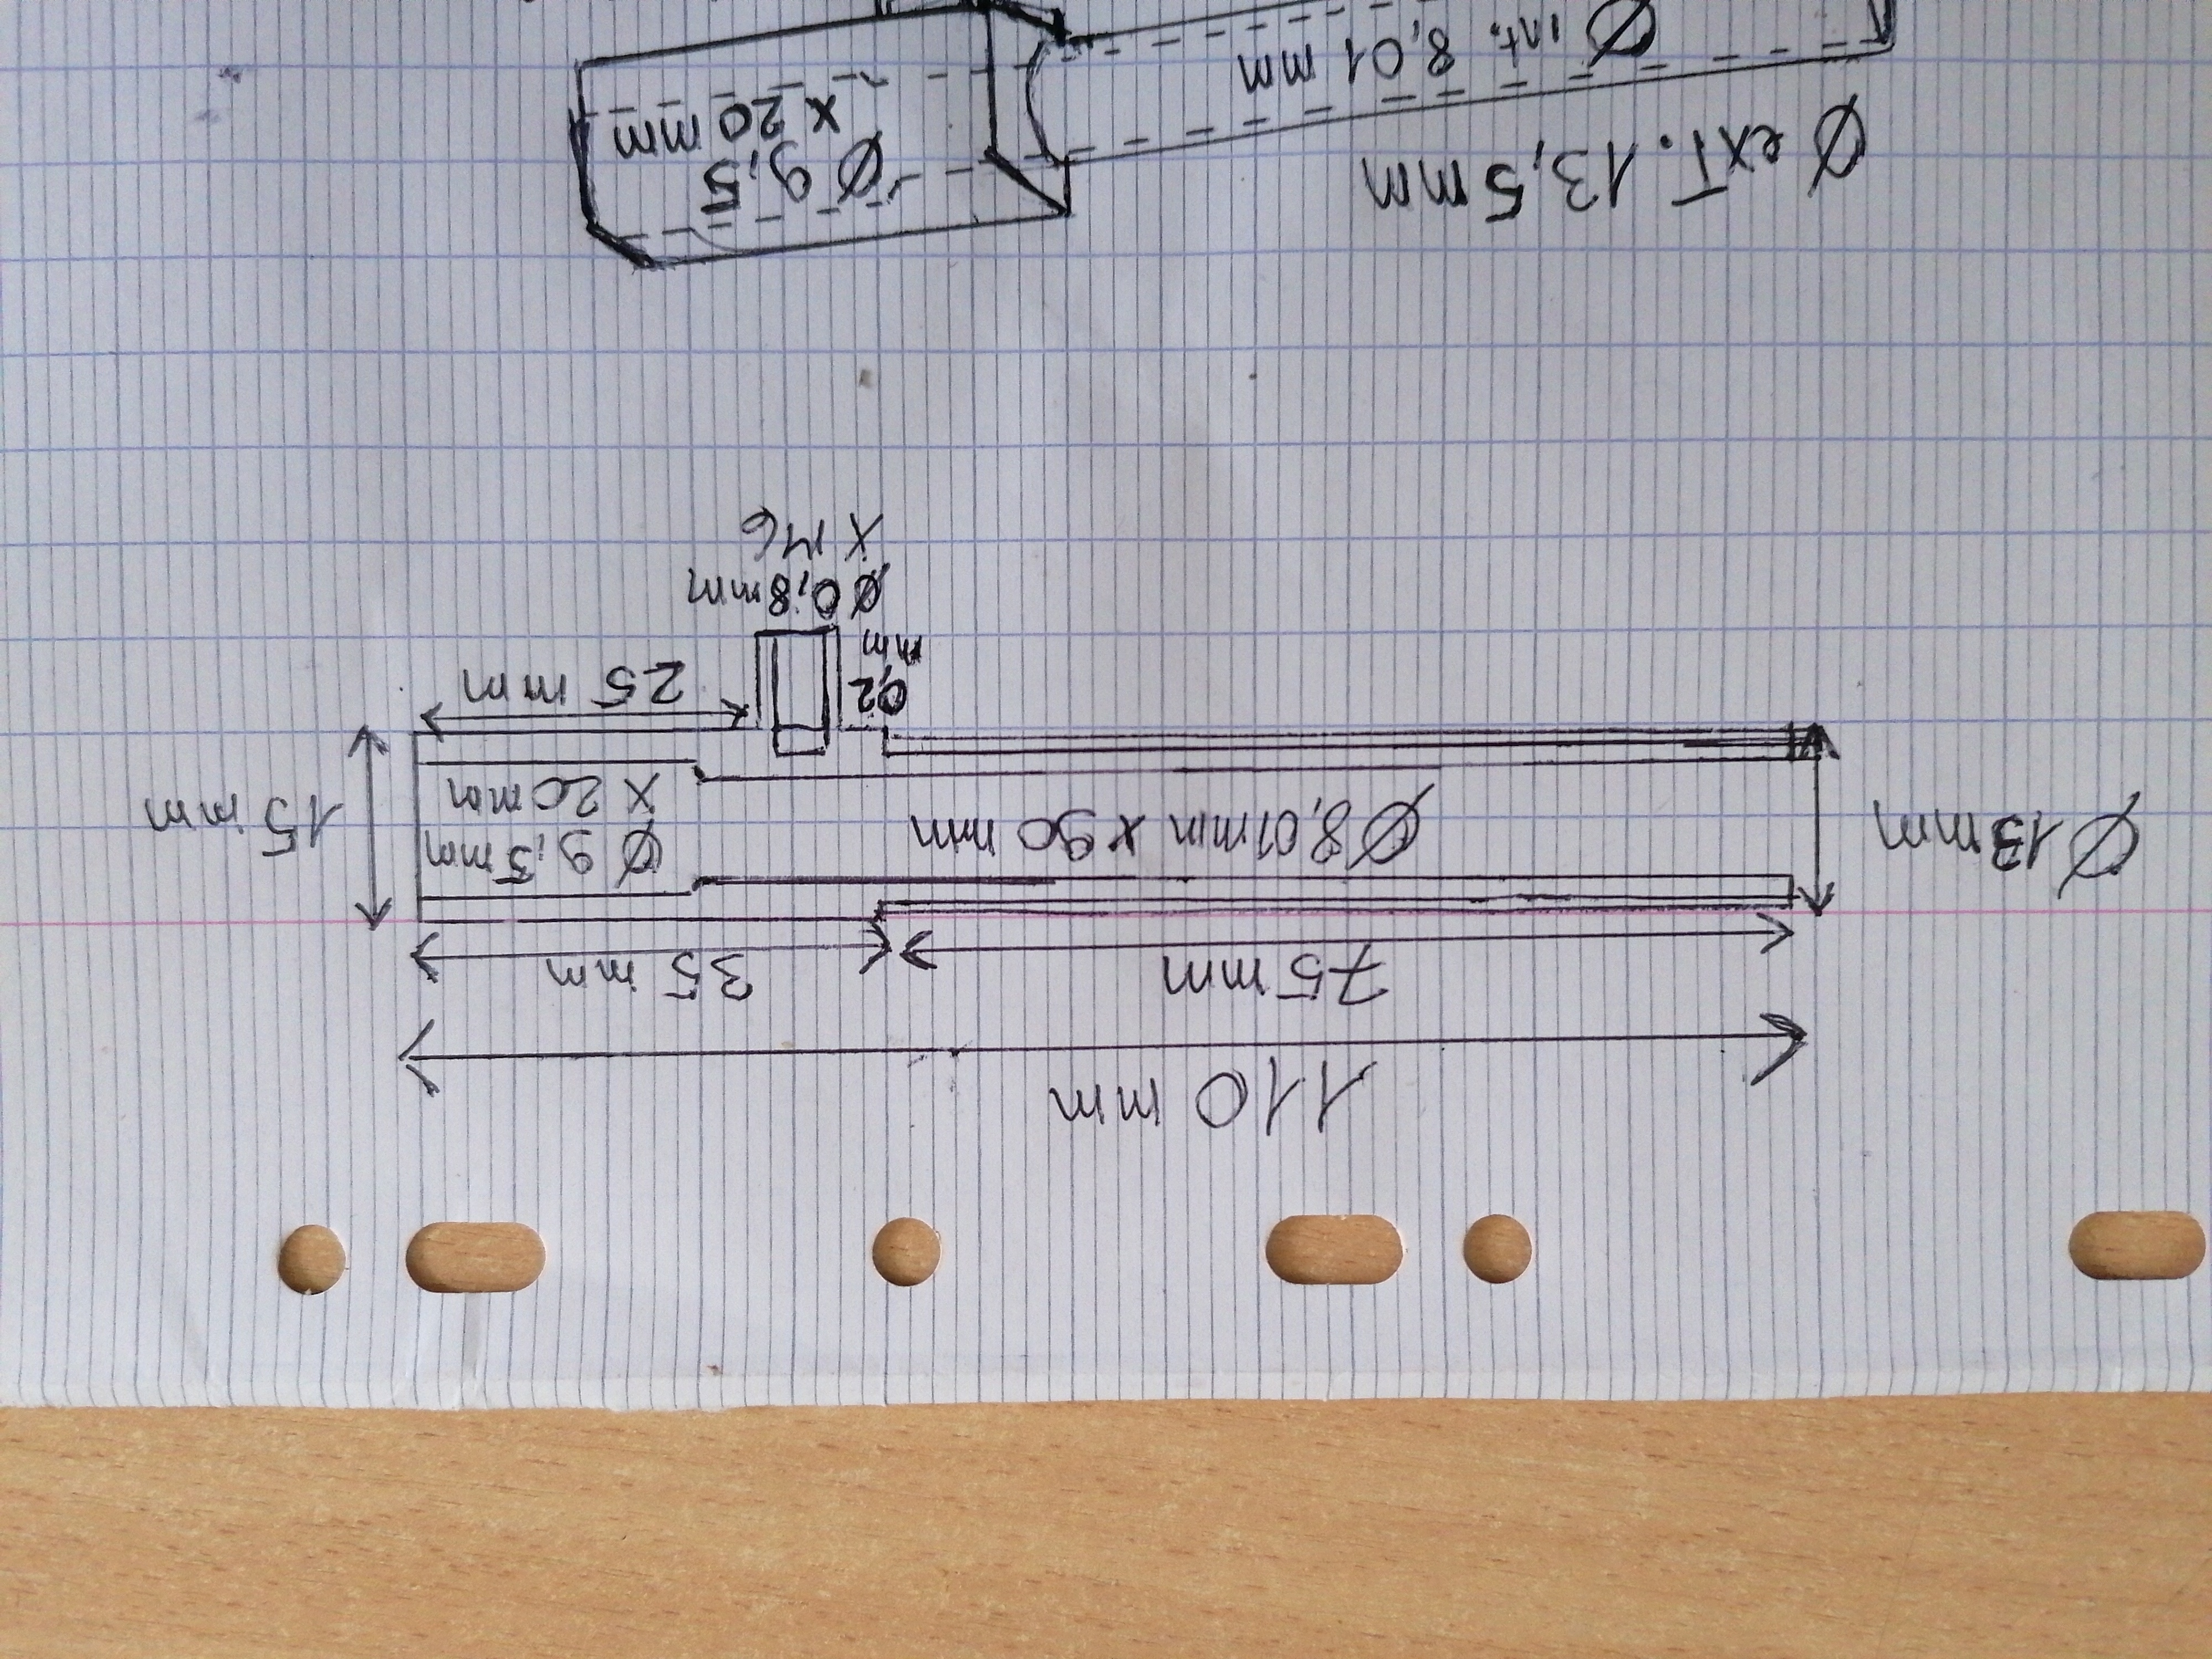 110 mm
75 mm
35 mm
Ø 13 mm
Ø 8,01 mm x 90 mm
Ø 9,5 mm
x 20 mm
15 mm
0,2
mm
25 mm
Ø 0,8 mm
x M6
Ø ext. 13,5 mm
Ø int. 8,01 mm
Ø 9,5
x 20 mm